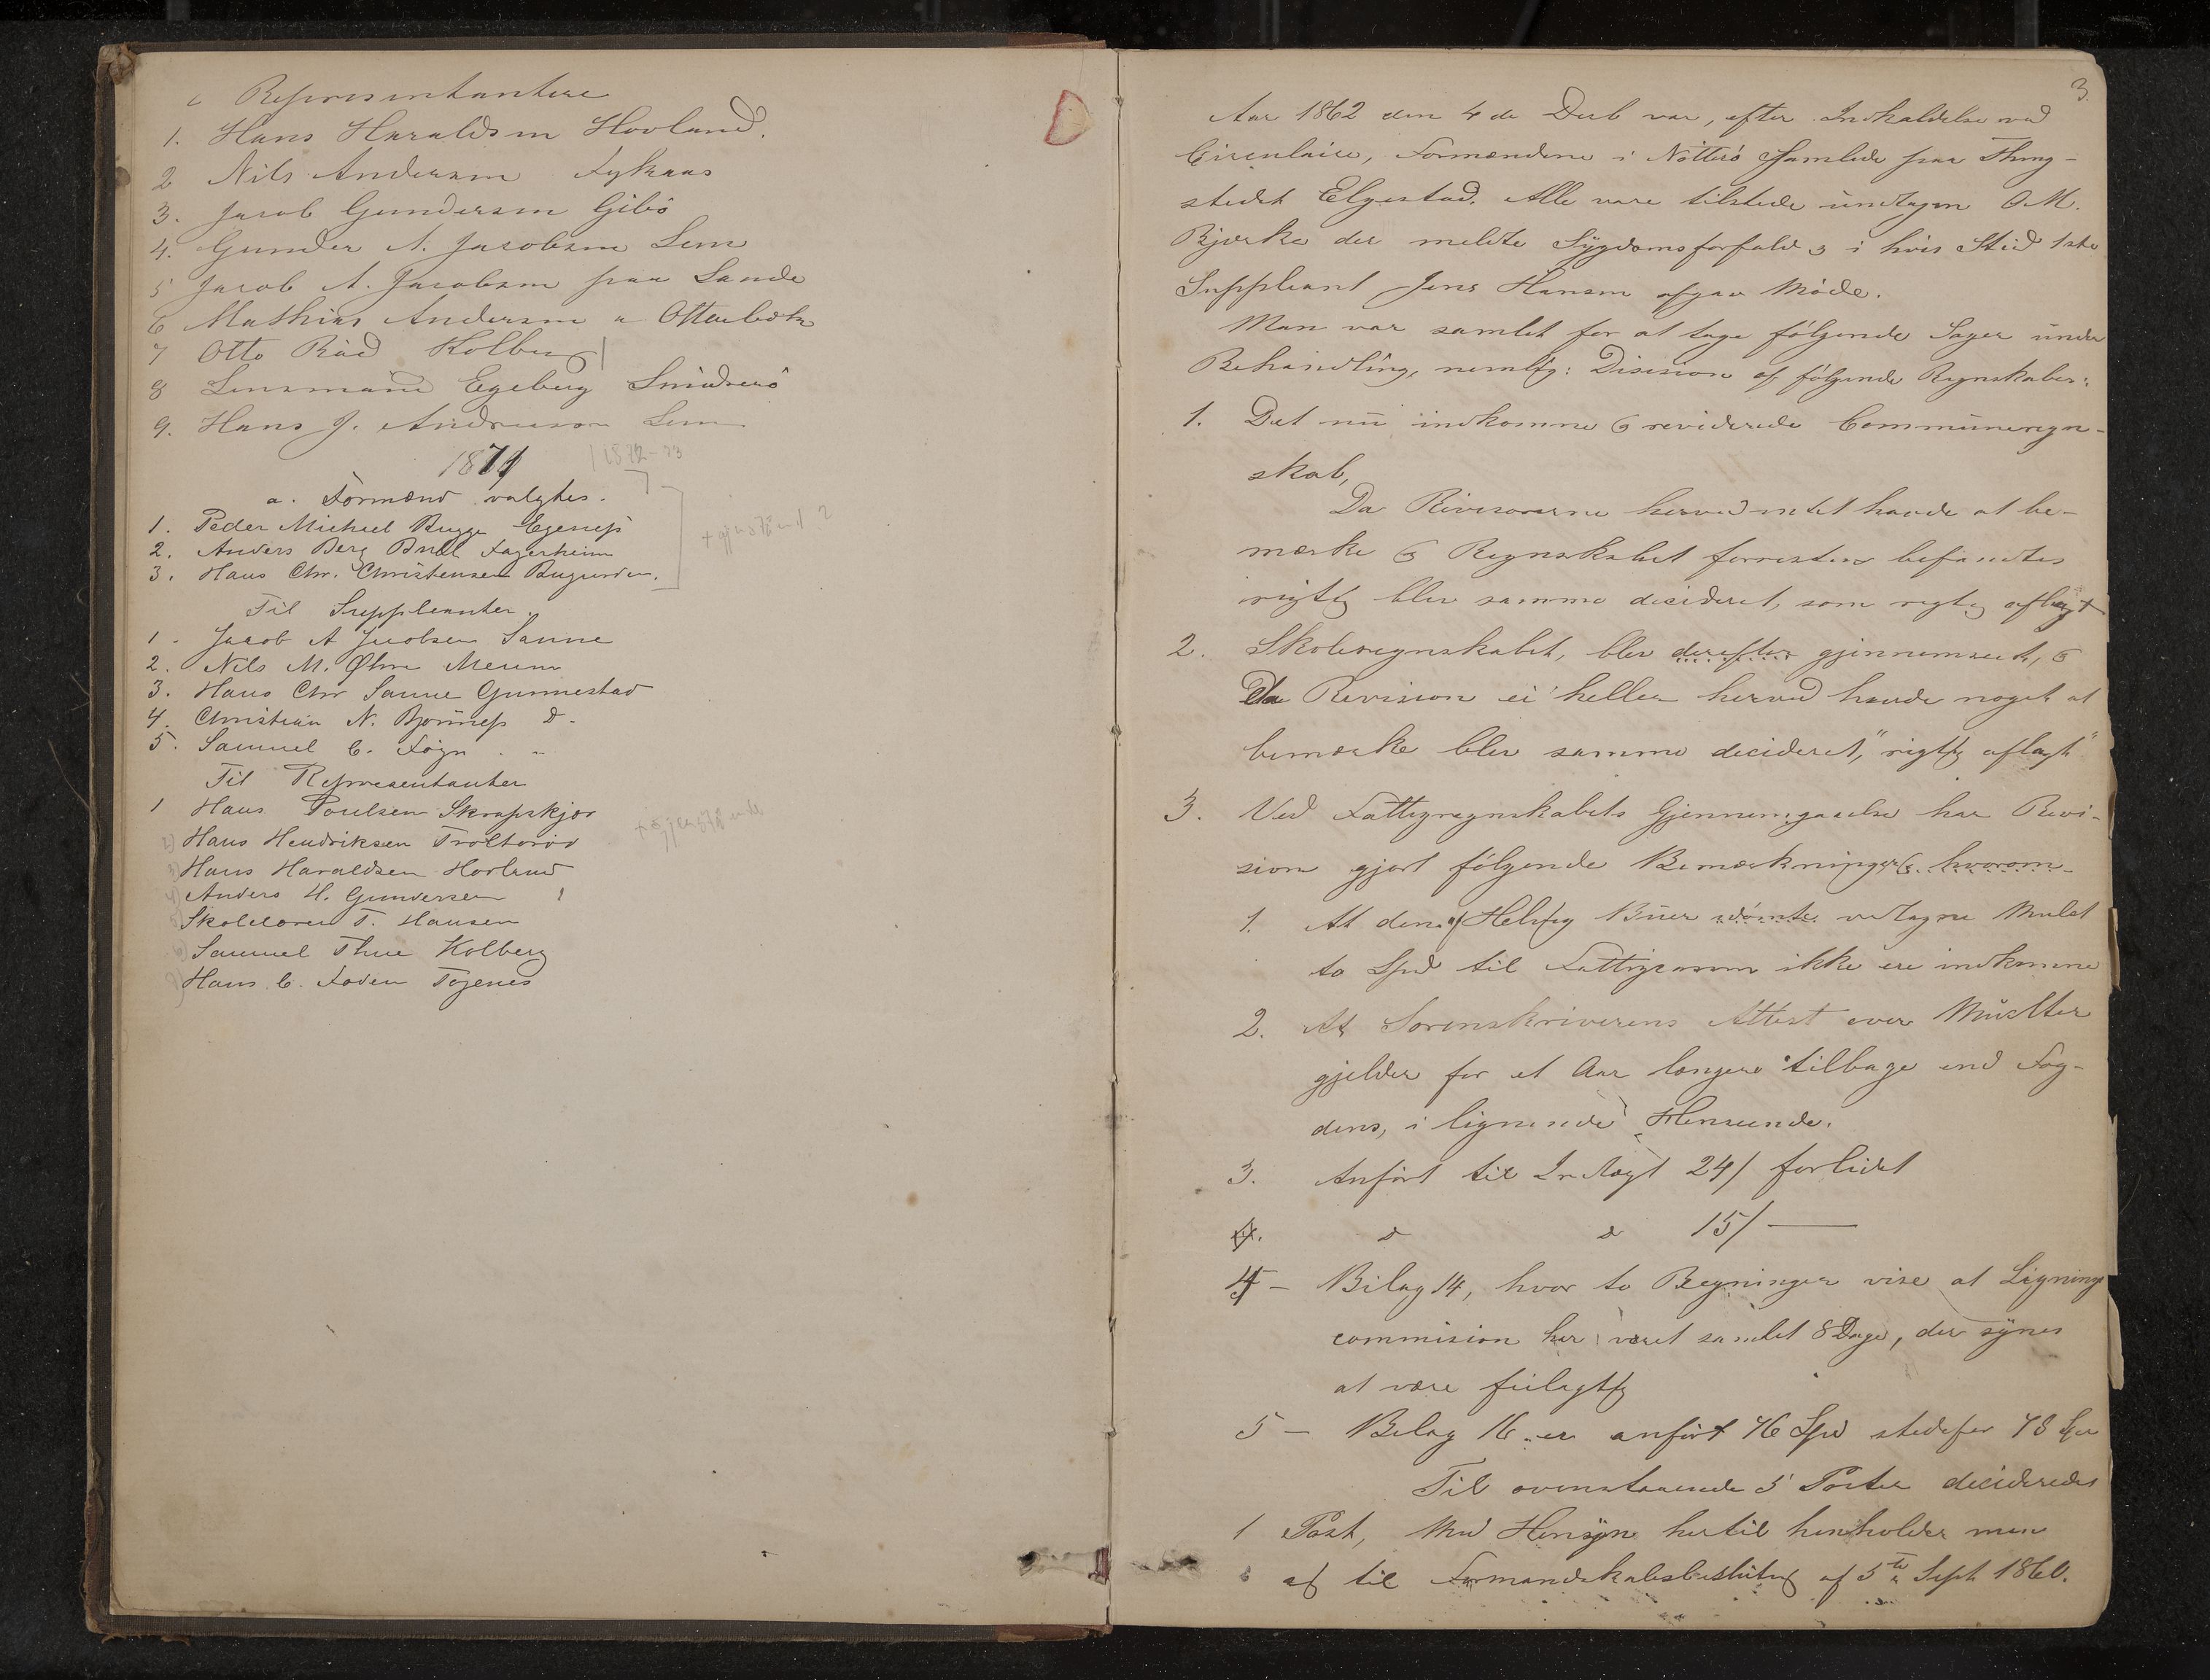 c Representantere
1. Hans Haraldsen Hovland.
2 Nils Andersen
3. Jacob Gundersen Gibö
4. Gunder A. Jacobsen Lem
5 Jacob A. Jacobsen paa Sande
6 Mathias Andersen
7 Otto Kolberg
8 Lensmand Egeberg
9. Hans J. Andreason Lem
1871 1872-73
a. Formænd valgtes.
1. Peder Michael Bugge Egenes
2. Anders Berg Bull Fagerheim
3. Hans Chr. Christensen
Til Suppleanter.
1. Jacob A Jacobsen Sanne
2. Nils M. Øhre Meum
3. Hans Chr Sanne Gunnestad
4. Christian N. Bjönnes D-
5. Samuel C. Föyn
Til Representanter
1 Hans Poulsen Skrapskjær
2) Hans Hendriksen
3) Hans Haraldsen Hovland
4) Anders H. Gundersen
5) Skolelærer T. Hansen
6) Samuel Thue Kolberg
Hans C. Foden Togenes
3.
Aar 1862 den 4de Decb var, efter Indkaldelse ved
Circulaire, Formændene i Nötterö samlede paa Thing-
stedet Elgestad. Alle vare tilstede undtagen O.M.
Bjerke der meldte Sygdomsforfald & i hvis Sted 1ste
Suppleant Jens Hansen afgav Möde.
Man var samlet for at tage fölgende Sager under
Behandling, nemlig: Decision af fölgende Regnskaber:
1. Det nu indkomne & reviderede Communeregn-
skab,
Da Revisorerne herved intet havde at be-
mærke & Regnskabet forresten befandtes
rigtig blev samme decideret, som rigtig aflagt
2. Skoleregnskabet, blev derefter gjennemseet, &
Da Revision ei heller herved havde noget at
bemærke blev samme decideret, "rigtig aflagt"
3. Ved Fattigregnskabets Gjennemgaaelse har Revi-
sion gjort fölgende Bemærkninger hvorom
1. At den af Helvig Buer idömte vedtagne Mulct
to Spd til Fattigcassen ikke ere indkomne
2. At Sorenskriverens Attest over Mulcter
gjelder for et Aar længere tilbage end Fog-
dens, i lignende Henseende.
3. Anfört til Indtægt 24/ forlidet
4. d d 15/ —
4 - Bilag 14, hvor to Regninger vise at Ligning
commision har været samlet 8 Dage, der synes
at være feilagtig
5 - Bilag 16 er anfört 76 Spd stedefor 78 Spd
Til ovenstaaende 5 Poster decideredes
1 Post, Med Hensyn hertil henholder man
sig til Formandskabsbeslutng af 5te Sept 1860.